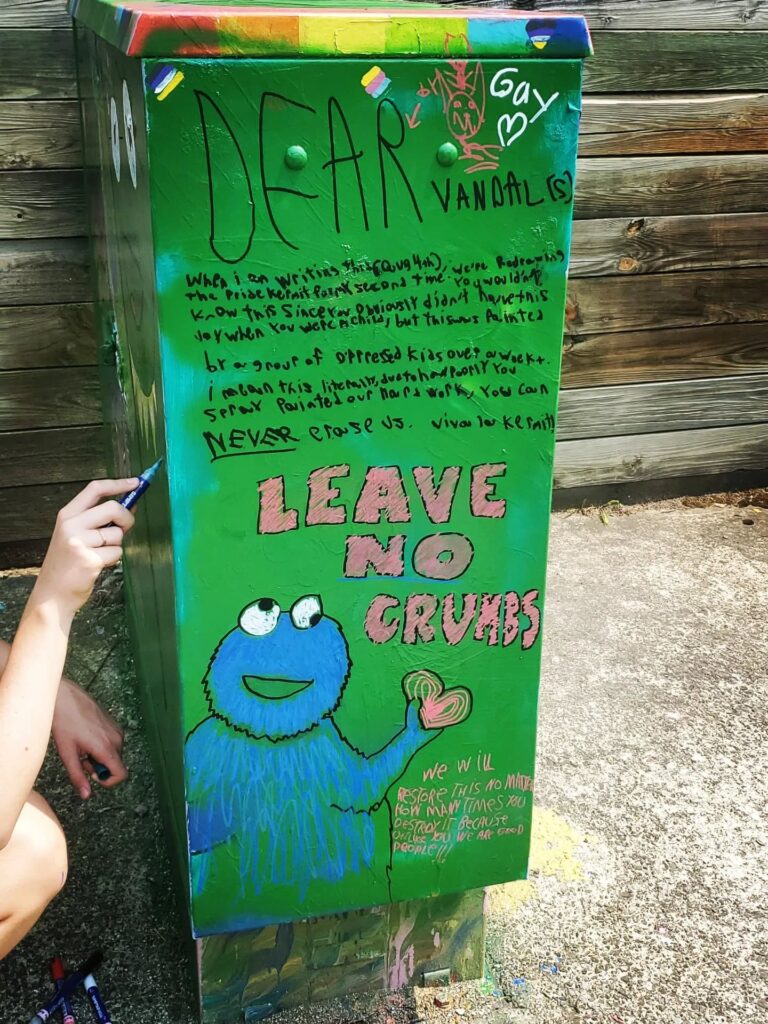 GaY
DEAR
VANDAL(S)
When i am writing this (Aug 4th), we're Redrawing
the Pride Kermit for a second time. You wouldn't
know this since You obviously didn't have this
Joy when You were a child, but this was Painted
by a group of oppressed kids over a week+.
i mean this literally, due to how poorly You
spray Painted our hard work, You can
NEVER erase us. viva la Kermit!!
LEAVE
NO
CRUMBS
We Will
RESTORE THIS NO MATTER
HOW MANY TIMES YOU
DESTROY IT BECAUSE
UNLIKE YOU WE ARE GOOD
PEOPLE!!!